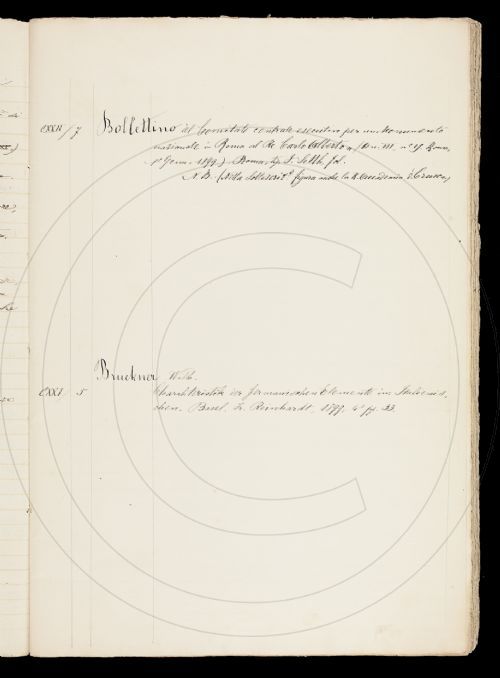 CXXII / 7 Bollettino del Comitato centrale esecutivo per un Monumento
nazionale in Roma al Re Carlo Alberto (An. III, nº
1º Genn. 1899). Roma, tip. fol.
N. B. (Nella figura anche la R. Accademia d. Crusca)
Bruckner, W.
CXXI / 5 Charakteristik der germanischen Elemente im Italienis-
chen. Basel, L. Reinhardt, 1899, 4º pp. 33.